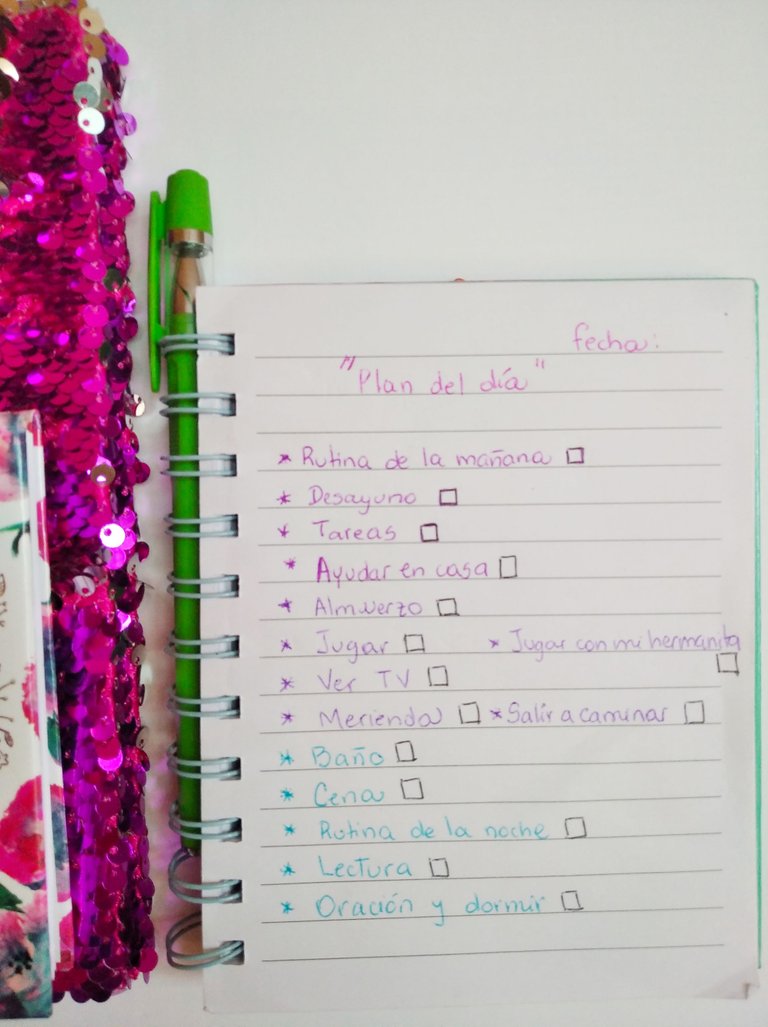 fecha:
"Plan del día"
* Rutina de la mañana
* Desayuno
* Tareas
* Ayudar en casa
* Almuerzo
* Jugar * Jugar con mi hermanita
* Ver TV
* Merienda * Salir a caminar
* Baño
* Cena
* Rutina de la noche
* Lectura
* Oración y dormir